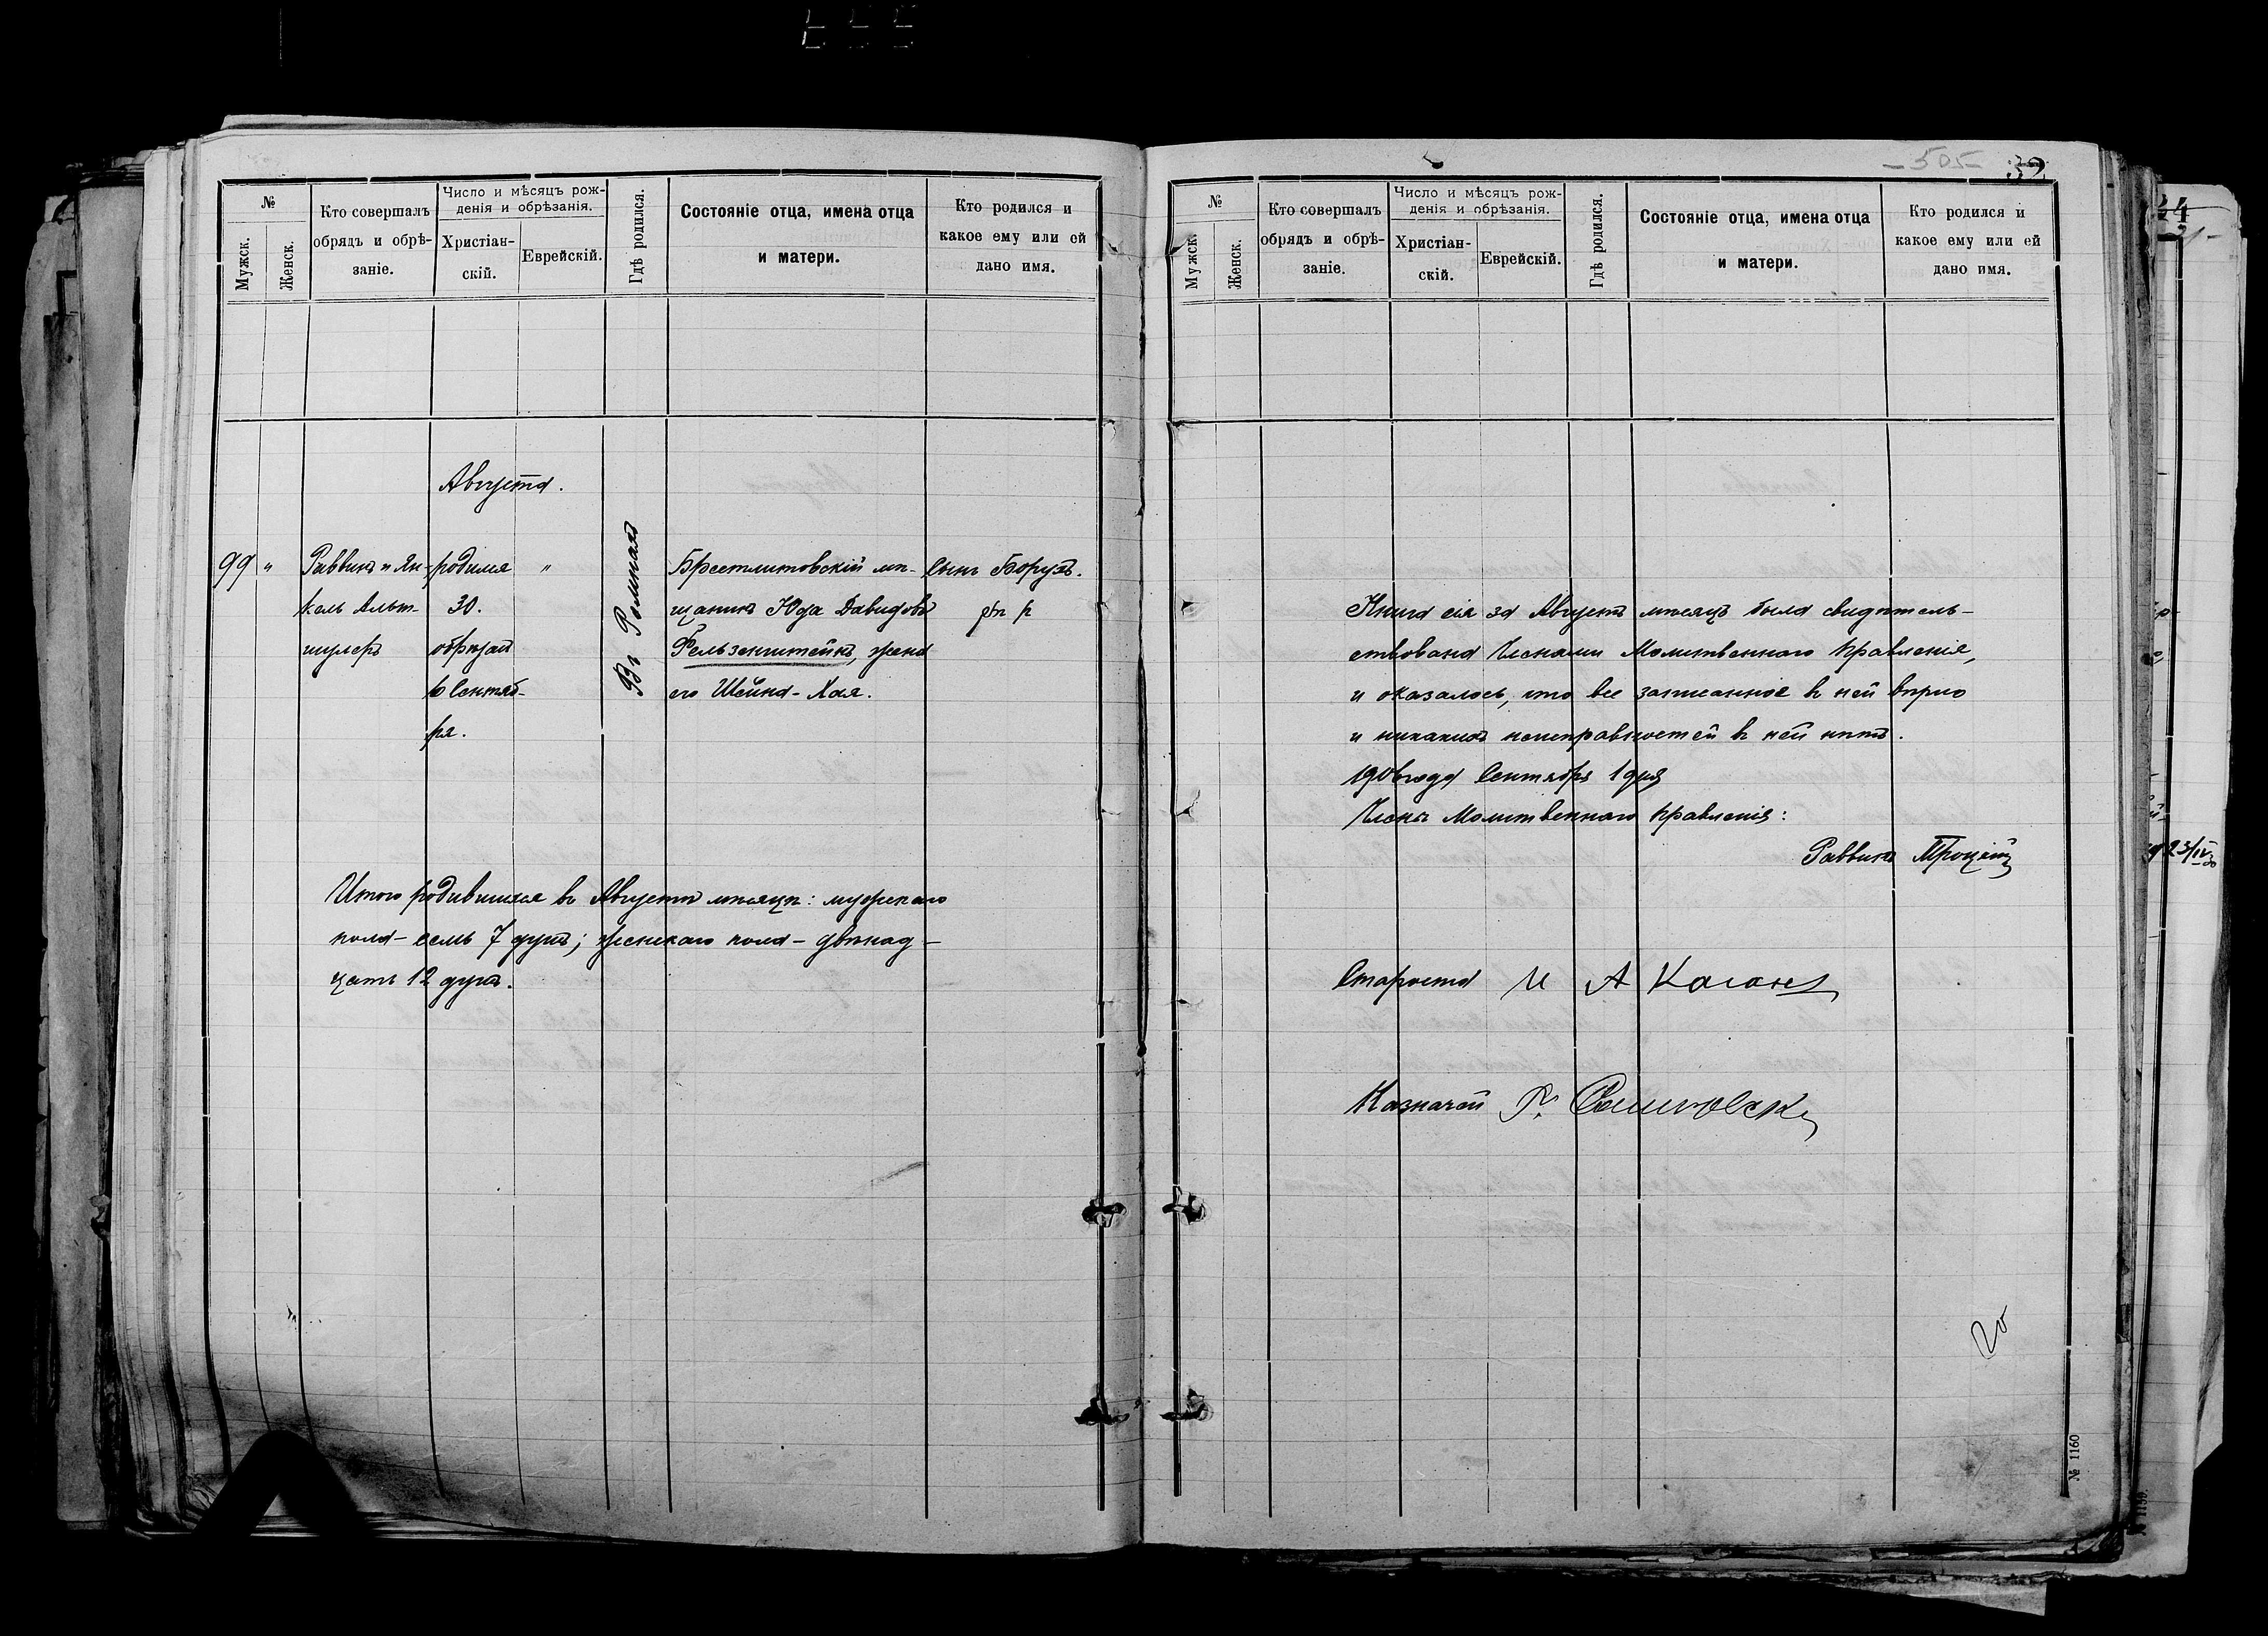 №
Мужск.
Женск.
Кто совершалъ
обрядъ и обрѣ-
заніе.
Число и мѣсяцъ рож-
денія и обрѣзанія.
Христіан-
скій.
Еврейскій.
Гдѣ родился.
Состояніе отца, имена отца
и матери.
Кто родился и
какое ему или ей
дано имя.
Августа.
99 " Раввинъ и Ян-
кель Альт-
шулеръ
родился "
30.
обрѣзан
6 Сентяб-
ря.
Въ Ромнахъ
Брестлитовскій мѣ-
щанинъ Юда Давидовъ
Фельзенштейнъ, жена
его Шейна-Хая.
Сынъ Борухъ.
Итого родившихся въ Августѣ мѣсяцѣ: мужскаго
пола – семь 7 душъ; женскаго пола – двѣнад-
цать 12 душъ.
– 505 – 32
№
Мужск.
Женск.
Кто совершалъ
обрядъ и обрѣ-
заніе.
Число и мѣсяцъ рож-
денія и обрѣзанія.
Христіан-
скій.
Еврейскій.
Гдѣ родился.
Состояніе отца, имена отца
и матери.
Кто родился и
какое ему или ей
дано имя.
Книга сія за Августъ мѣсяцъ была свидѣтель-
ствована Членами Молитвеннаго Правленія,
и оказалось, что все записанное въ ней вѣрно
и никакихъ неисправностей въ ней нѣтъ.
года Сентября 1 дня
Члены Молитвеннаго Правленія:
Раввинъ
Староста И А Каганъ
Казначей
20
№ 1160